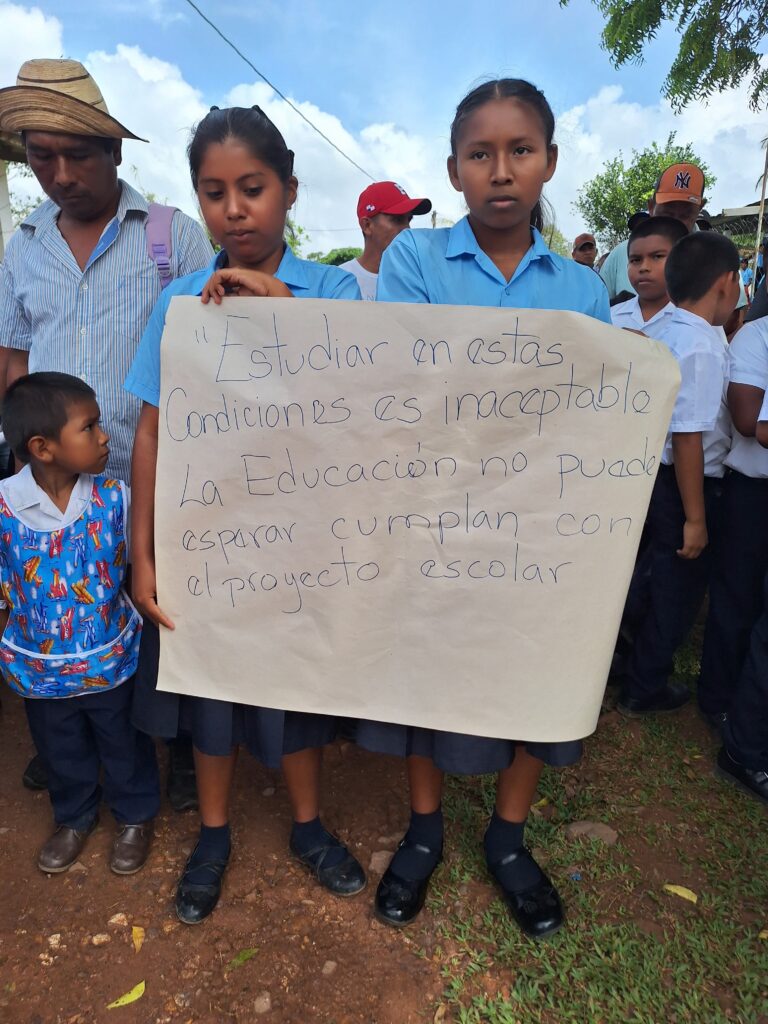 "Estudiar en estas
Condiciones es inaceptable
La Educación no puede
esperar cumplan con
el proyecto escolar
NY